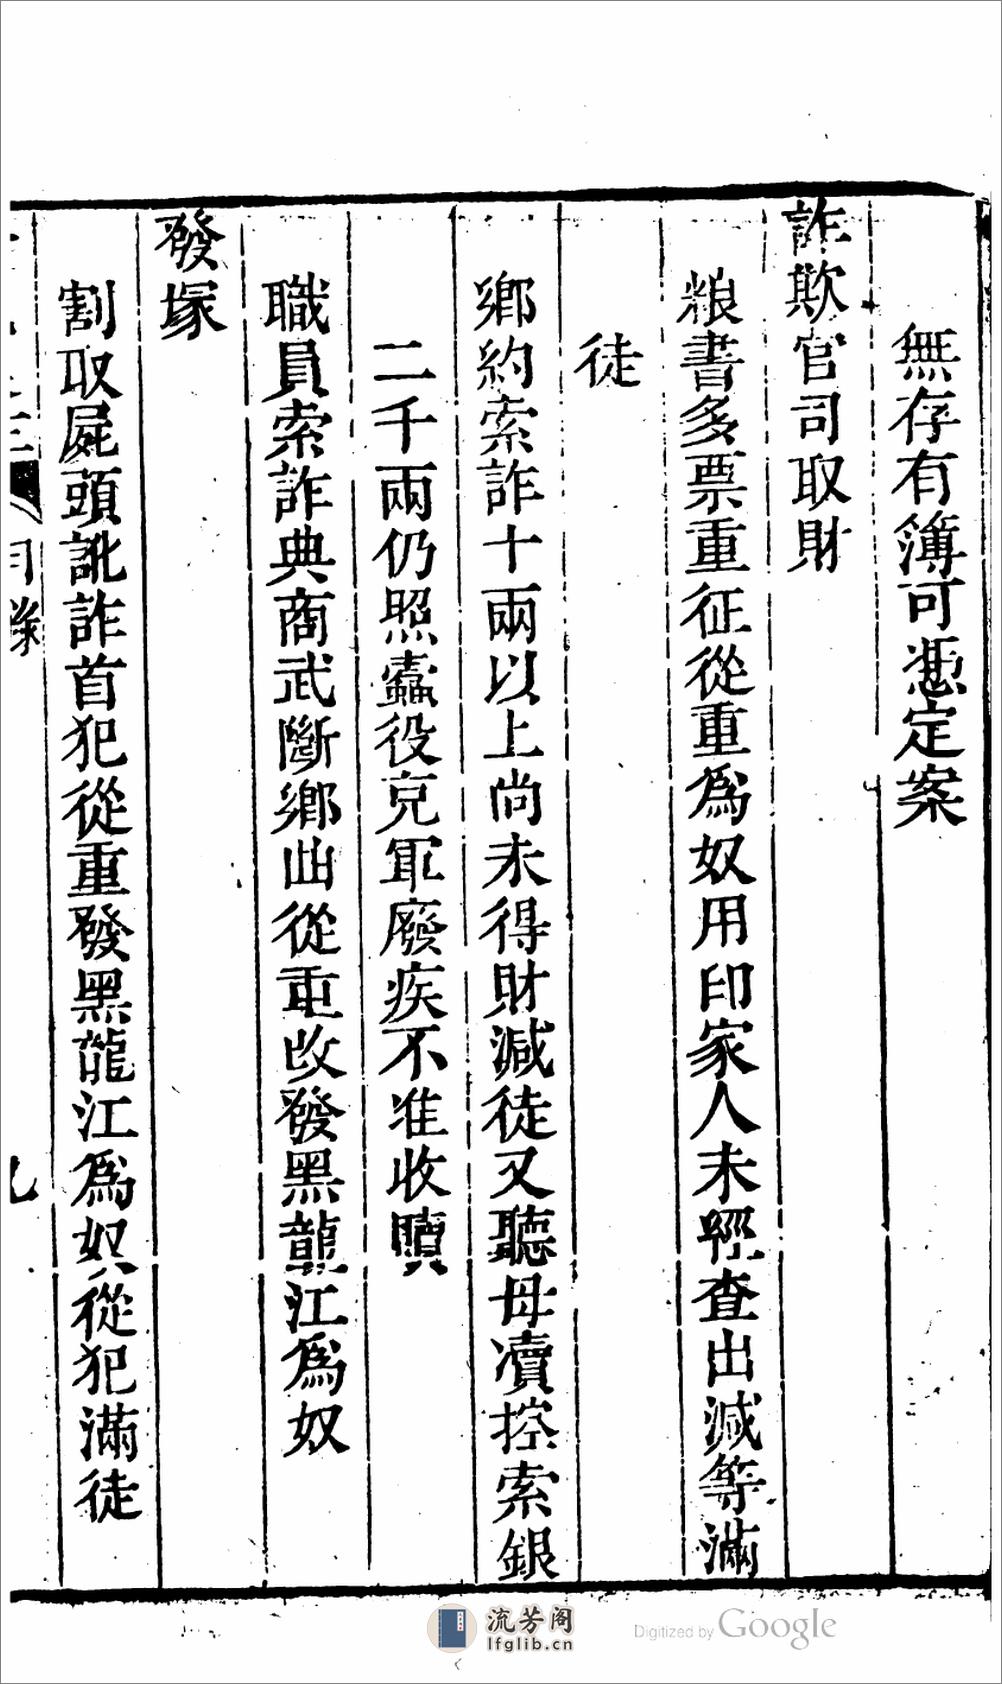 無存有簿可憑定案
詐欺官司取財
粮書多票重征從重爲奴用印家人未經查出減等滿
徒
鄉約索詐十兩以上尚未得財減徒又聽母凟控索銀
二千兩仍照蠹役充軍廢疾不准收贖
職員索詐典商武斷鄉曲從重改發黑龍江爲奴
發塚
割取屍頭訛詐首犯從重發黑龍江爲奴從犯滿徒
目錄
九
流芳阁
lfglib.cn
Digitized by Google